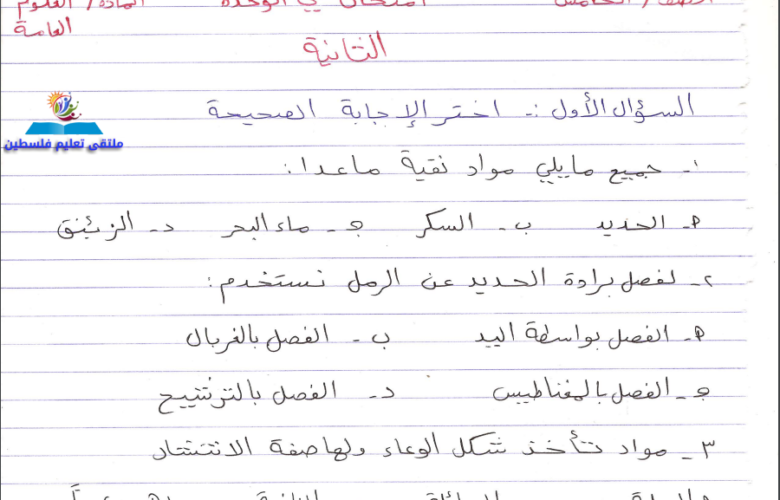 الصف / الخامس امتحان في الوحدة المادة / العلوم
العامة
الثانية
السؤال الأول :- اختر الإجابة الصحيحة
ملتقى تعليم فلسطين
١- جميع مايلي مواد نقية ماعدا :
أ- الحديد ب- السكر ج- ماء البحر د- الزئبق
٢- لفصل برادة الحديد عن الرمل نستخدم :
أ- الفصل بواسطة اليد ب- الفصل بالغربال
ج- الفصل بالمغناطيس د- الفصل بالترشيح
٣- مواد تأخذ شكل الوعاء ولها صفة الانتشار